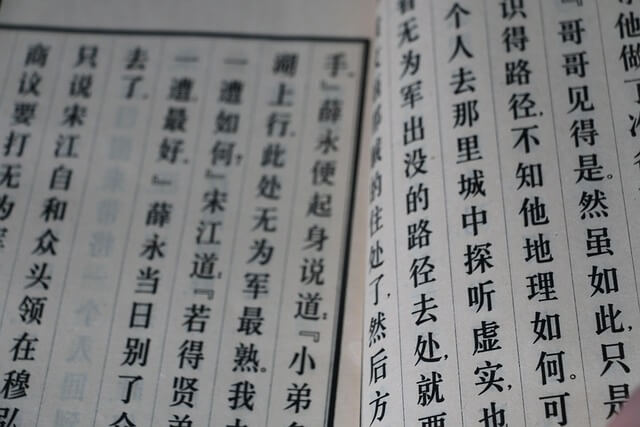 他做
『哥哥见得是。然虽如此,只是
识得路径,不知他地理如何。可
个人去那里城中探听虚实,也
看无为军出没的路径去处,就要
的住处了,然后方
手。』薛永便起身说道:『小弟多
湖上行。此处无为军最熟。我去
一遭如何?』宋江道:『若得贤弟
一遭最好。』薛永当日别了众
去了。
只说宋江自和众头领在穆弘
商议要打无为军